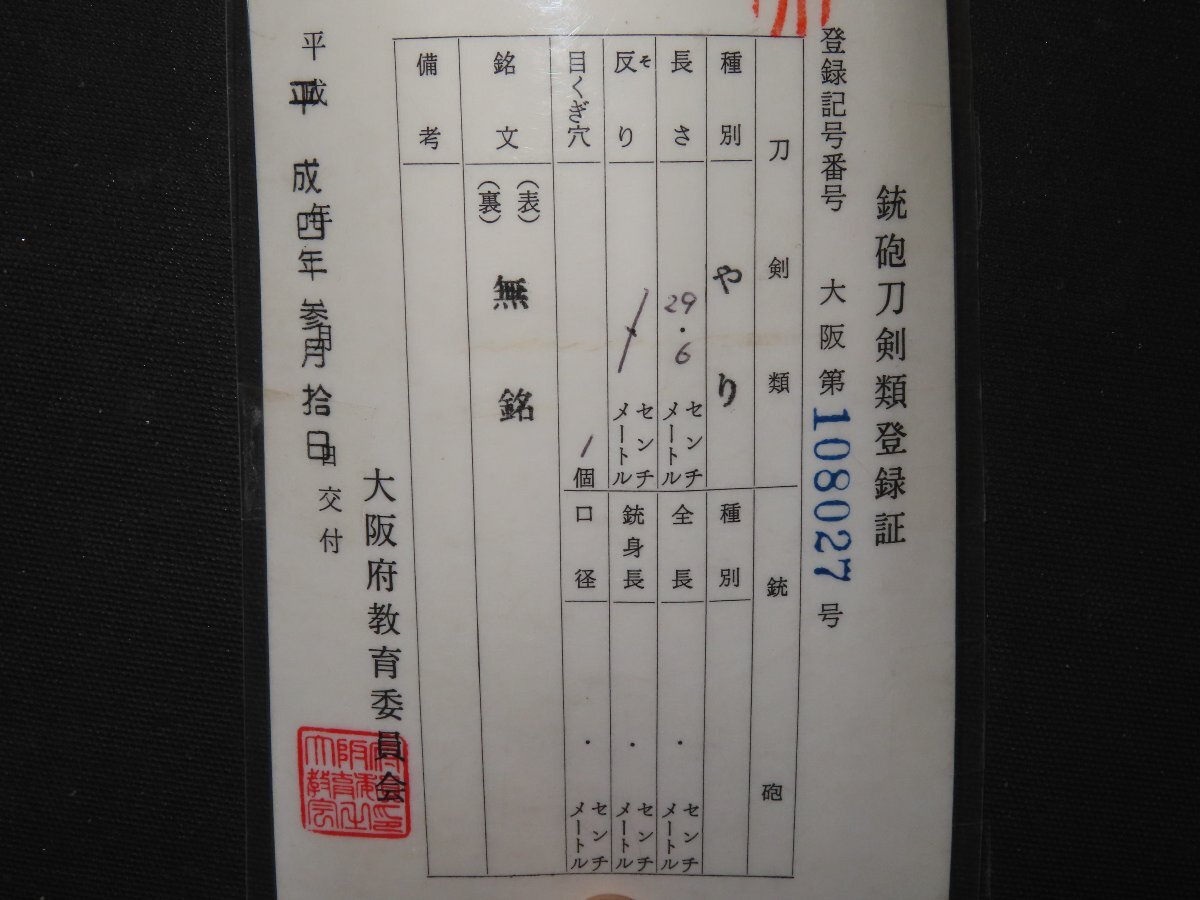 銃砲刀剣類登録証
登録記号番号 大阪第108027号
刀剣類
種別 やり
長さ 29.6 センチメートル
反り そ センチメートル
目くぎ穴 1個
銘文 (表) (裏) 無銘
備考
銃砲
種別
全長 ・ センチメートル
銃身長 ・ センチメートル
口径 ・ センチメートル
平成 年 月 日交付
平成四年参月拾日
大阪府教育委員会